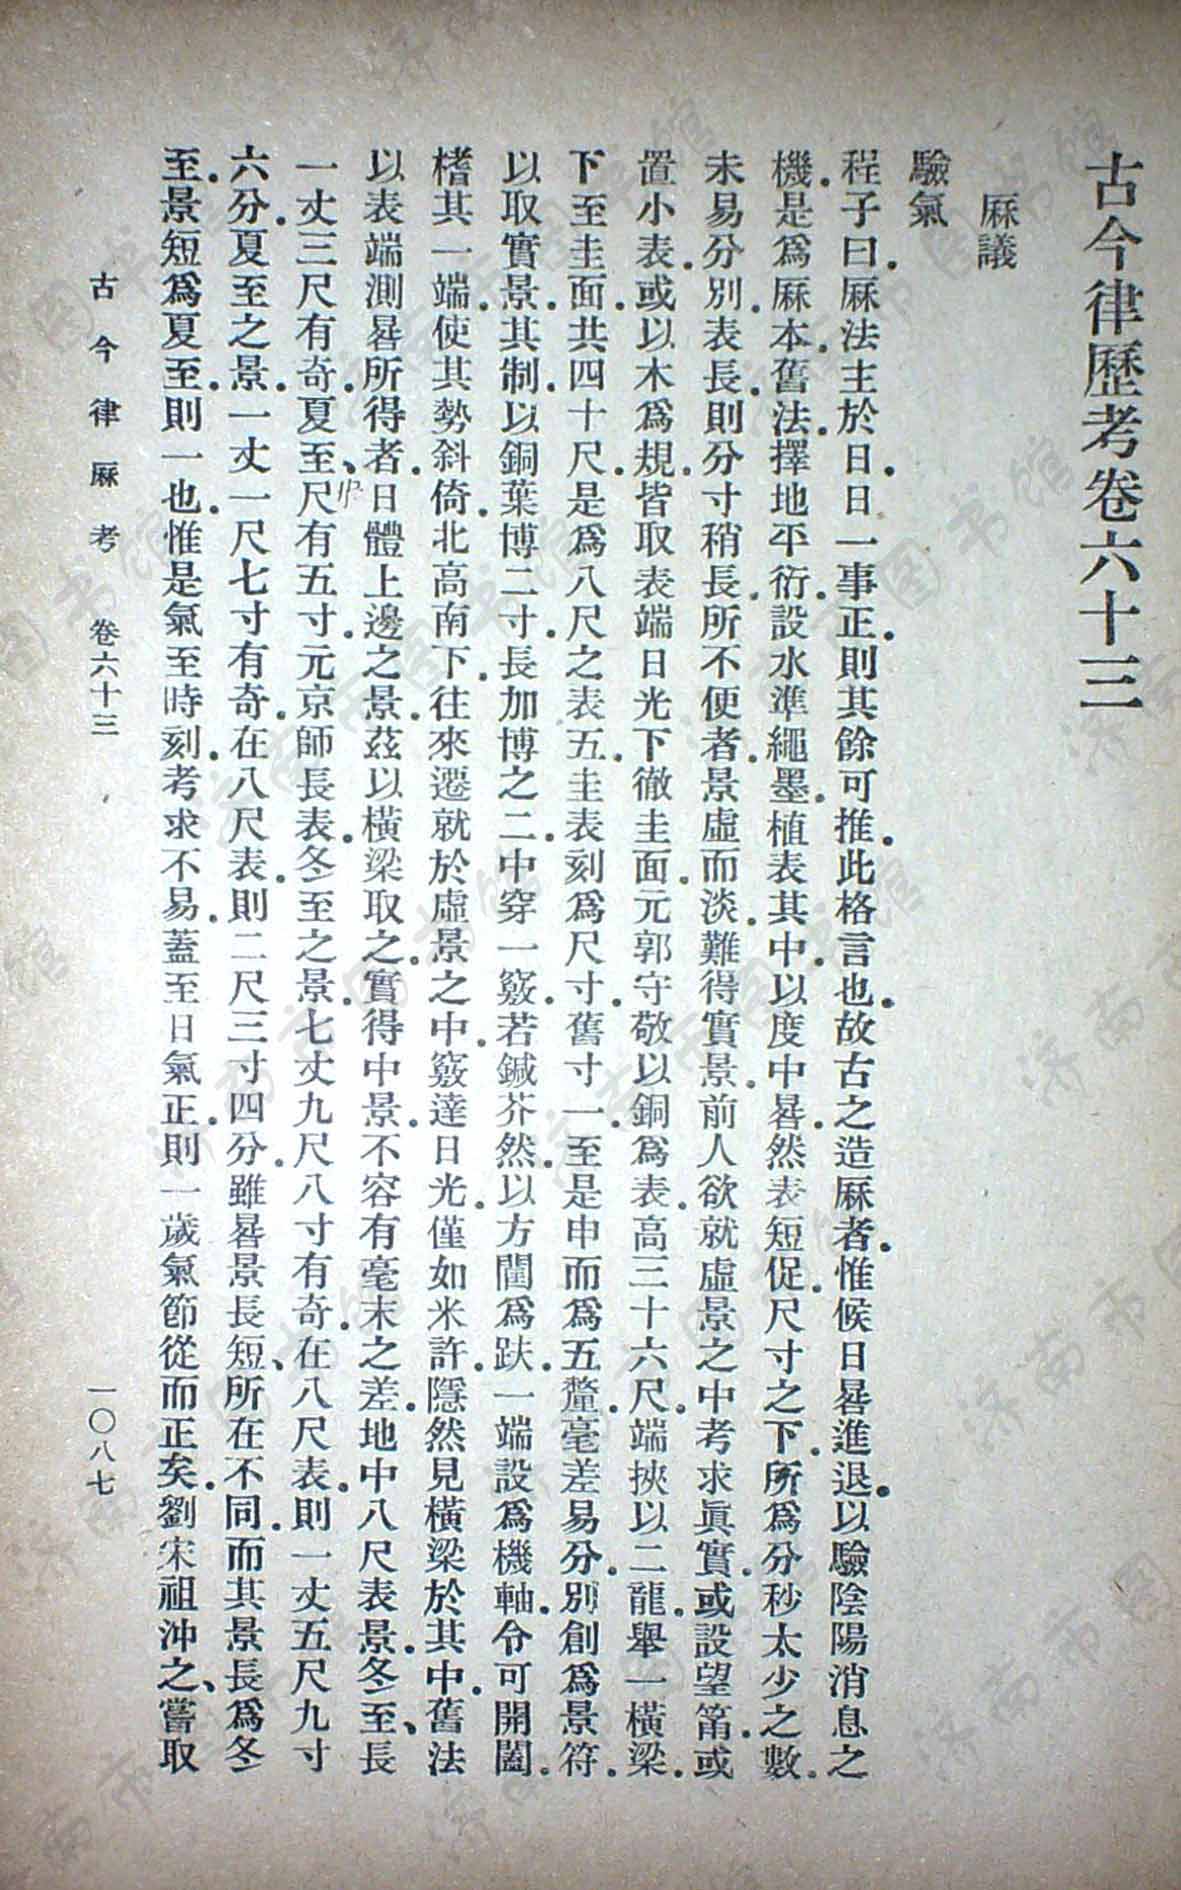 古今律歷考卷六十三
厤議
驗氣
程子曰．厤法主於日．日一事正．則其餘可推．此格言也．故古之造厤者．惟候日晷進退．以驗陰陽消息之
機．是爲厤本．舊法．擇地平衍．設水準繩墨．植表其中．以度中晷．然表短促．尺寸之下．所爲分秒太少之數．
未易分別．表長．則分寸稍長．所不便者．景虛而淡．難得實景．前人欲就虛景之中考求眞實．或設望筩．或
置小表．或以木爲規．皆取表端日光．下徹圭面．元郭守敬以銅爲表．高三十六尺．端挾以二龍．舉一橫梁．
下至圭面．共四十尺．是爲八尺之表五．圭表刻爲尺寸．舊寸一．至是申而爲五．釐毫差易分．別創爲景符．
以取實景．其制．以銅葉博二寸．長加博之二．中穿一竅．若鍼芥然．以方闉爲趺．一端設爲機軸．令可開闔．
榰其一端．使其勢斜倚．北高南下．往來遷就於虛景之中．竅達日光．僅如米許．隱然見橫梁於其中．舊法
以表端測晷．所得者．日體上邊之景．茲以橫梁取之．實得中景．不容有毫末之差．地中八尺表景．冬至、長
一丈三尺有奇．夏至、尺有五寸．元京師長表．冬至之景．七丈九尺八寸有奇．在八尺表．則一丈五尺九寸
六分．夏至之景．一丈一尺七寸有奇．在八尺表．則二尺三寸四分．雖晷景長短、所在不同．而其景長爲冬
至．景短爲夏至．則一也．惟是氣至時刻．考求不易．蓋至日氣正．則一歲氣節從而正矣．劉宋祖沖之、嘗取
古今律厤考　卷六十三
一〇八七
济南市图书馆